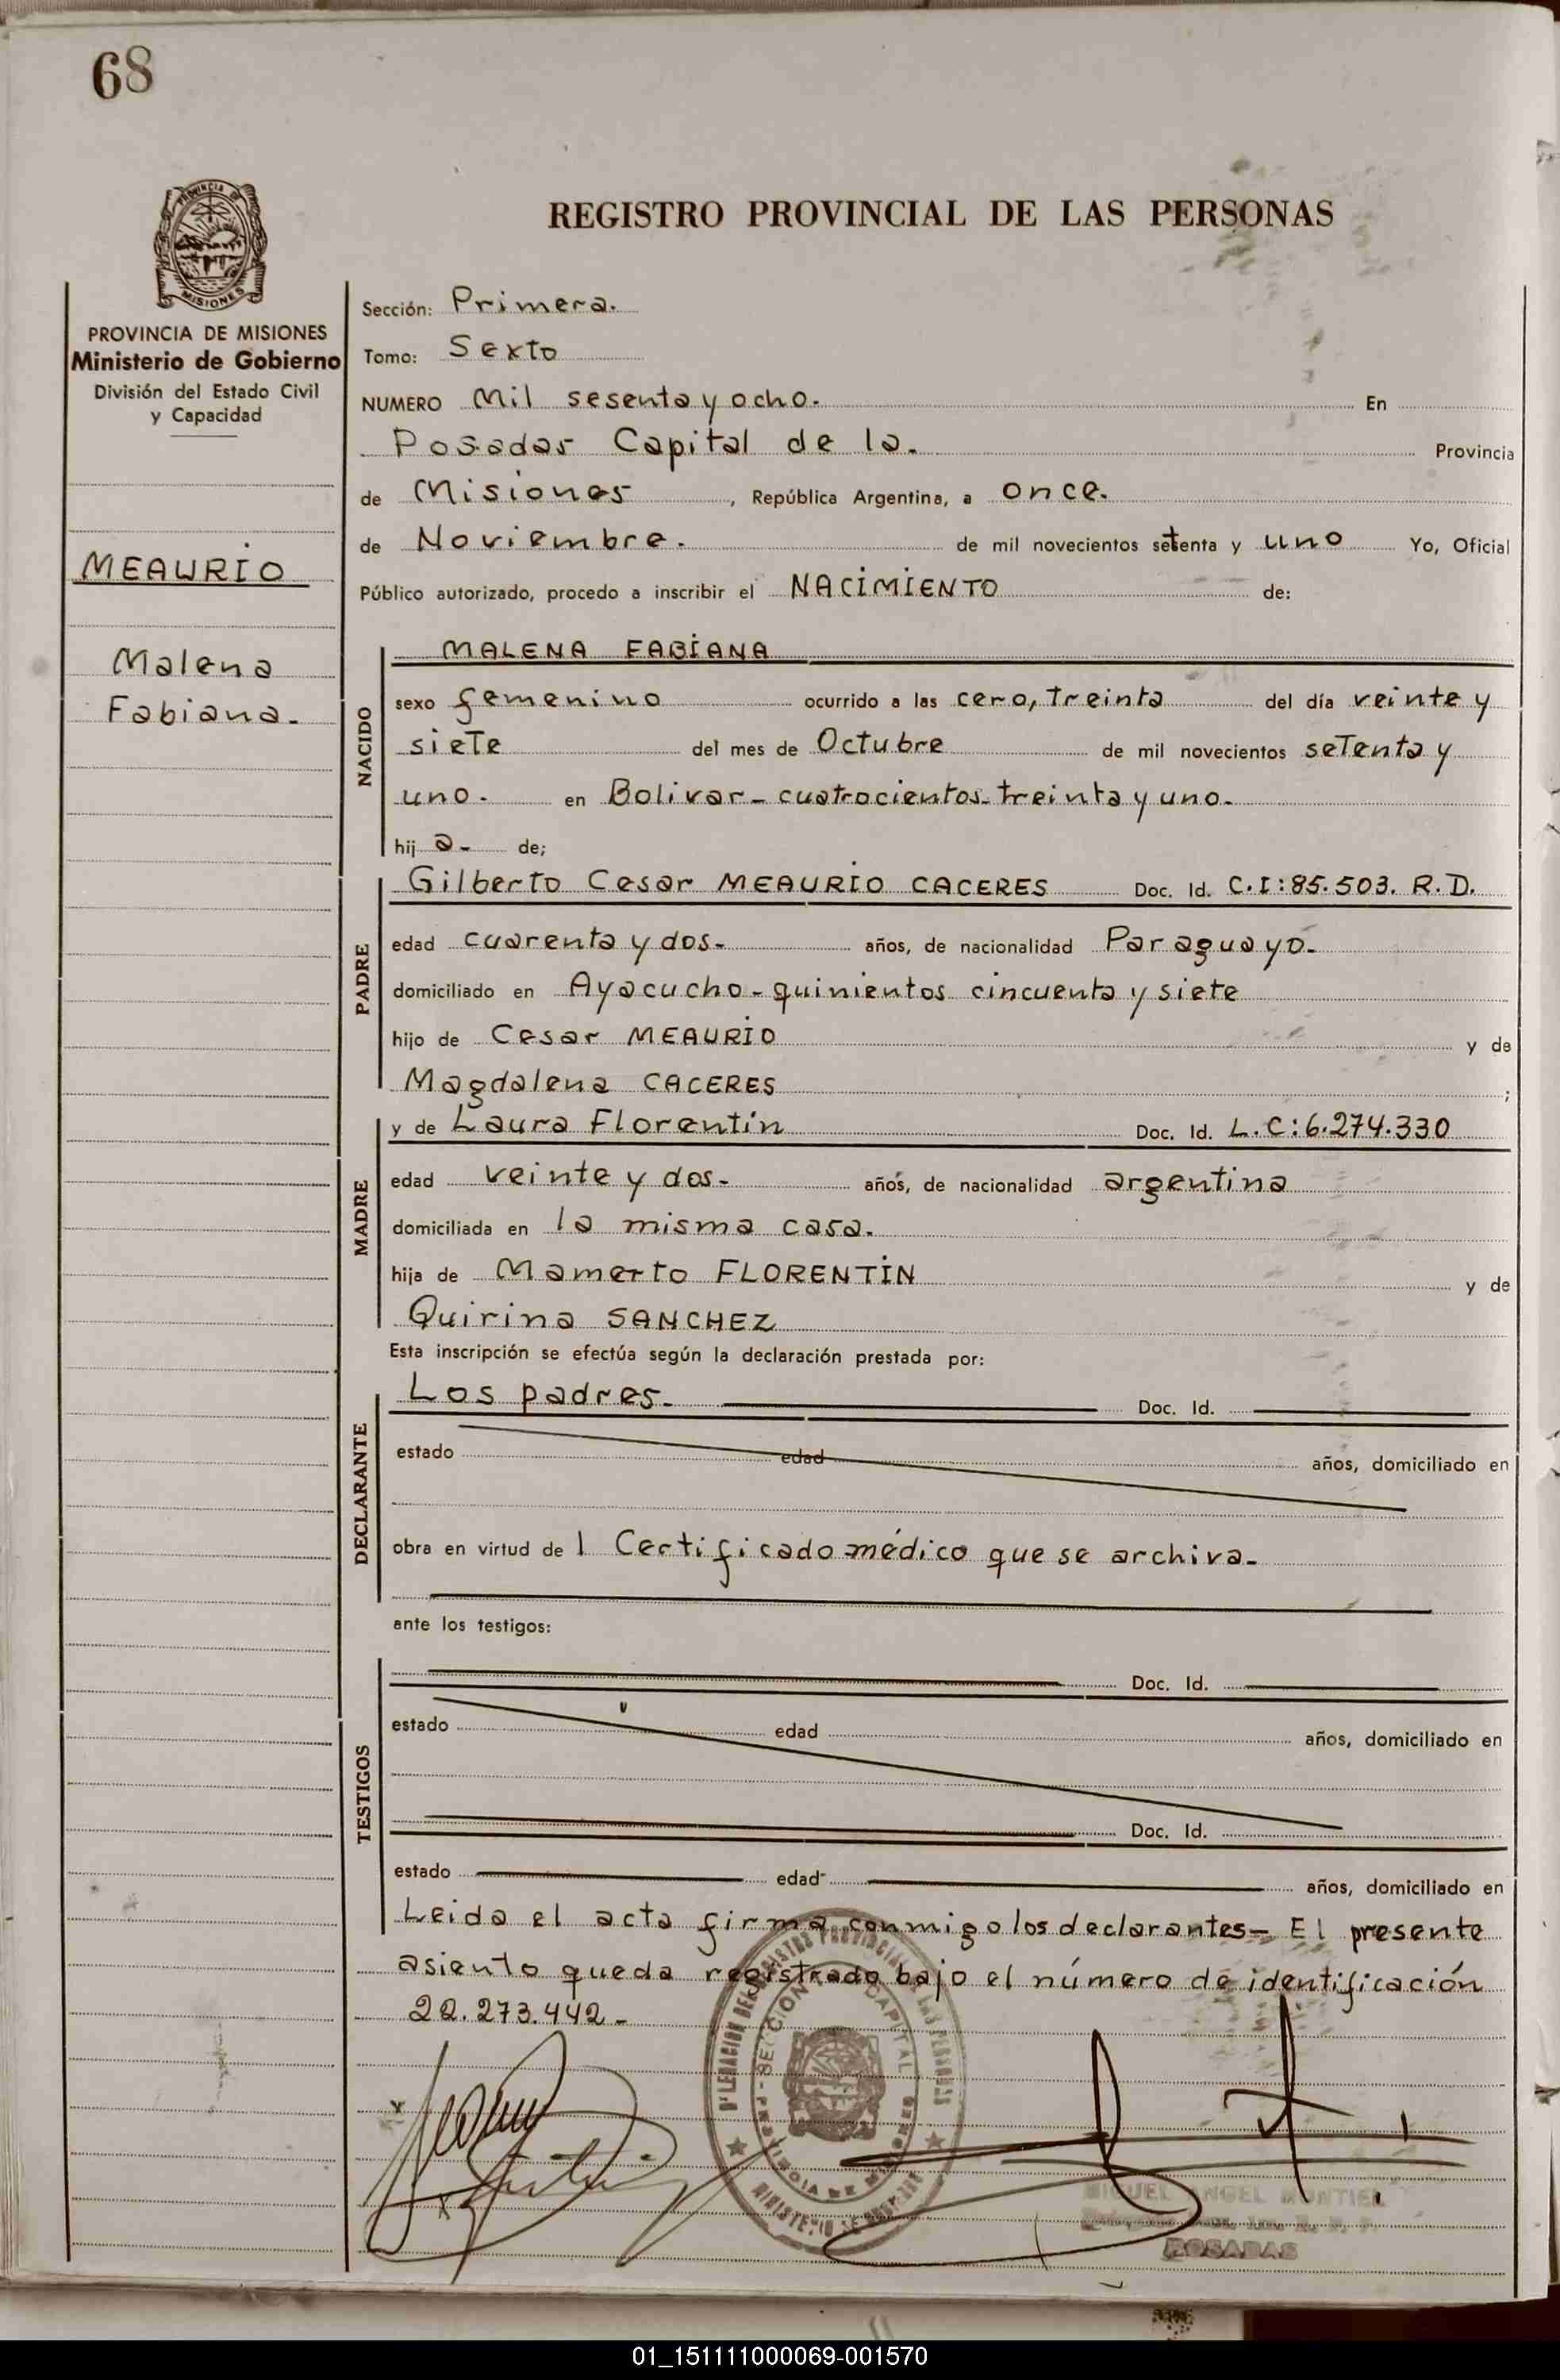 68
REGISTRO PROVINCIAL DE LAS PERSONAS
PROVINCIA DE MISIONES
Ministerio de Gobierno
División del Estado Civil
y Capacidad
MEAURIO
Malena
Fabiana.
Sección: Primera.
Tomo: Sexto
NUMERO Mil sesenta y ocho. En
Posadas Capital de la. Provincia
de Misiones, República Argentina, a once.
de Noviembre. de mil novecientos setenta y uno Yo, Oficial
Público autorizado, procedo a inscribir el NACIMIENTO de:
NACIDO
MALENA FABIANA
sexo femenino ocurrido a las cero, treinta del día veinte y
siete del mes de Octubre de mil novecientos setenta y
uno. en Bolivar - cuatrocientos treinta y uno.
hij a- de;
PADRE
Gilberto Cesar MEAURIO CACERES Doc. Id. C.I:85.503. R.D.
edad cuarenta y dos- años, de nacionalidad Paraguayo.
domiciliado en Ayacucho - quinientos cincuenta y siete
hijo de Cesar MEAURIO y de
Magdalena CACERES ;
MADRE
y de Laura Florentin Doc. Id. L.C:6.274.330
edad veinte y dos- años, de nacionalidad argentina
domiciliada en la misma casa.
hija de Mamerto FLORENTIN y de
Quirina SANCHEZ
Esta inscripción se efectúa según la declaración prestada por:
DECLARANTE
Los padres. Doc. Id.
estado edad años, domiciliado en
obra en virtud de l Certificado médico que se archiva-
ante los testigos:
TESTIGOS
Doc. Id.
estado edad años, domiciliado en
Doc. Id.
estado edad años, domiciliado en
Leida el acta firma conmigo los declarantes- El presente
asiento queda registrado bajo el número de identificación
22.273.442-
MIGUEL ANGEL MONTIEL
POSADAS
01_151111000069-001570